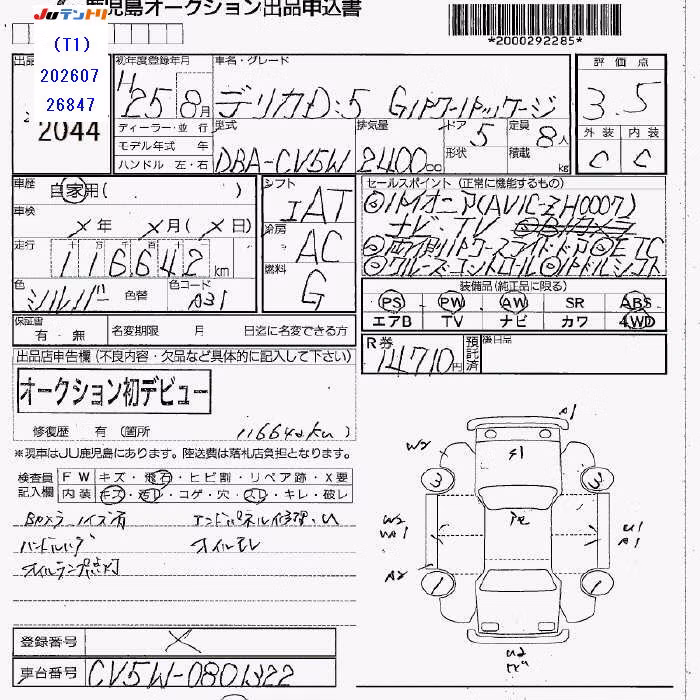 鹿児島オークション出品申込書
JUテントリ
(T1)
202607
26847
2044
*2000292285*
初年度登録年月 車名・グレード
H25 8月 デリカD:5 Gパワーパッケージ
評価点
3.5
外装 内装
C C
ディーラー・並行
モデル年式 年
ハンドル 左・右
型式 排気量 ドア形状 定員積載
DBA-CV5W 2400cc 5 8人 kg
車歴 自家用( )
車検 × 年 × 月(× 日)
走行 十 万 千 百 十
116642km
色 シルバー 色替 色コード A31
シフト IAT
冷房 AC
燃料 G
セールスポイント (正常に機能するもの)
◎パイオニア(AVIC-ZH0007)
ナビ・TV
◎両側パワースライドドア◎ETC
◎クルーズコントロール◎パドルシフト
装備品(純正品に限る)
PS PW AW SR ABS
エアB TV ナビ カワ 4WD
保証書 有 無 名変期限 月 日迄に名変できる方
R券 14710円 預託済 後日品
出品店申告欄(不良内容・欠品など具体的に記入して下さい)
オークション初デビュー
修復歴 有 (箇所 116642km)
※現車はJU鹿児島にあります。陸送費は落札店負担となります。
検査員記入欄
FW キズ・飛石・ヒビ割・リペア跡・X要
内装 キズ・汚レ・コゲ・穴・スレ・キレ・破レ
Bカメラノイズ有 エンドパネル修理・U
ハンドルハゲ オイルモレ
オイルランプ点灯
A1
W2
S1
3
3
W2
WA1
U1
A1
A2
1
1
U2
登録番号 ×
車台番号 CV5W-0801322